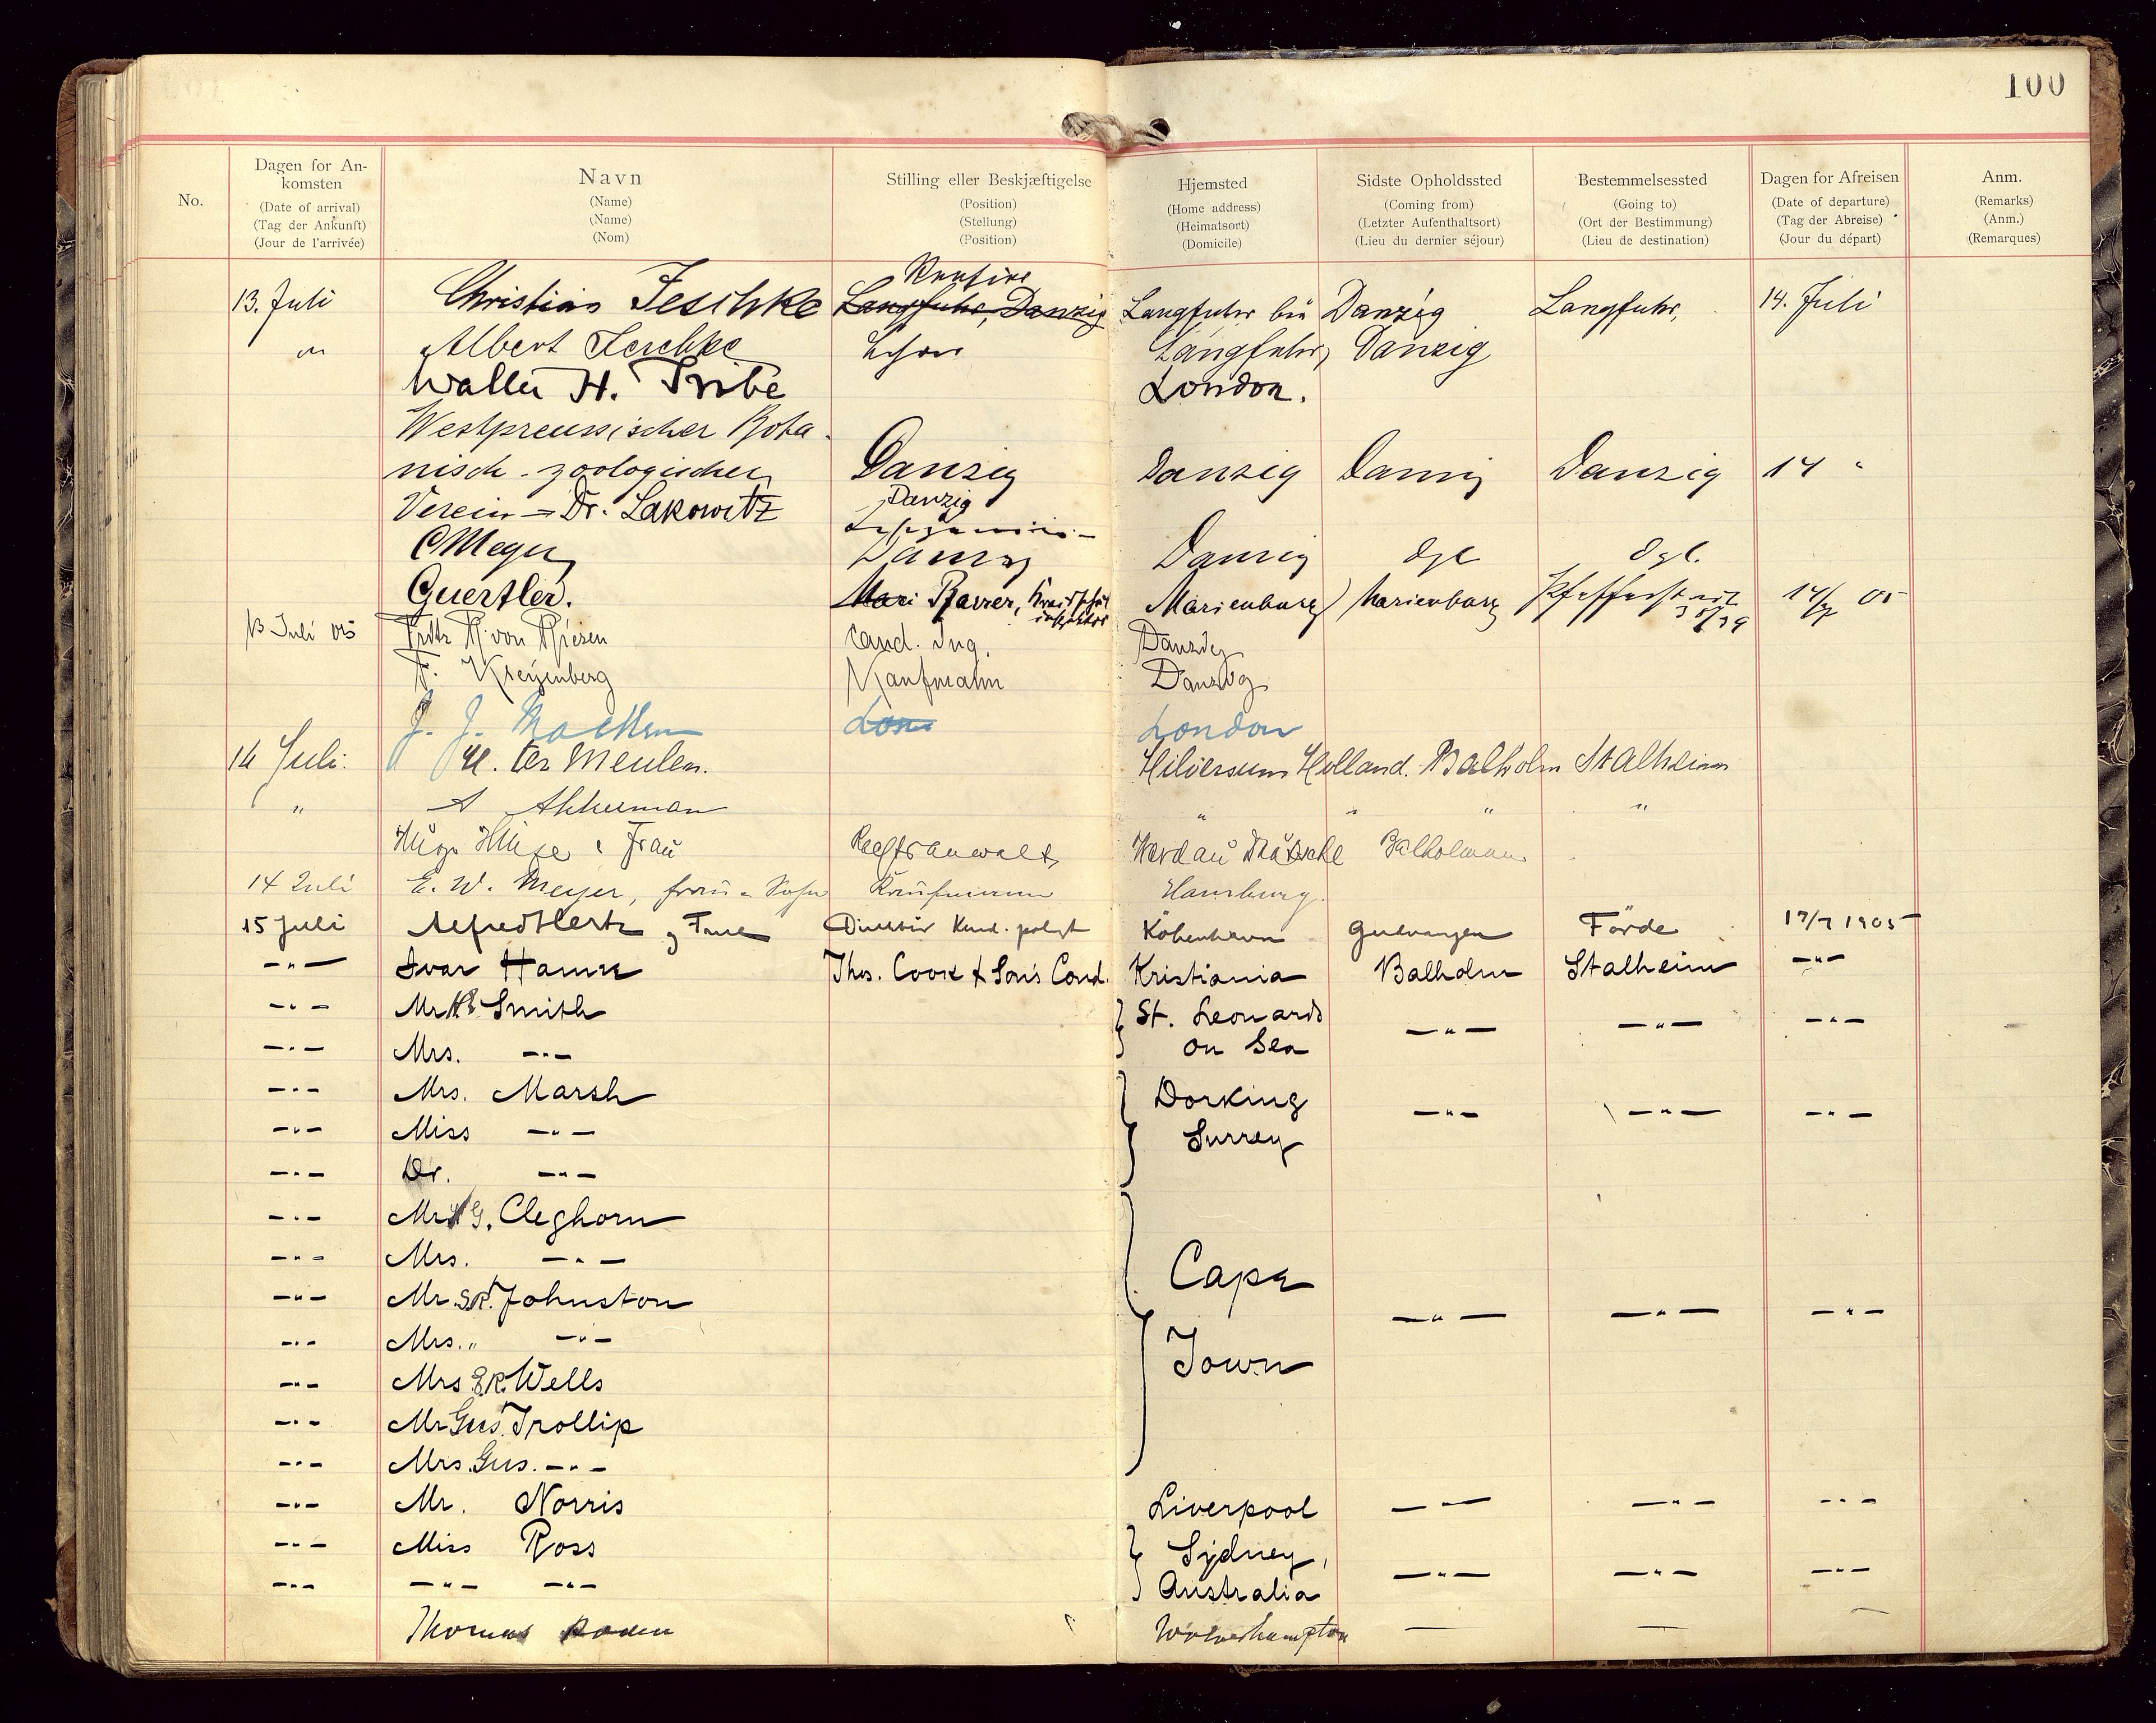 100
No.
Dagen for An-
komsten
(Date of arrival)
(Tag der Ankunft)
(Jour de l'arrivée)
Navn
(Name)
(Name)
(Nom)
Stilling eller Beskjæftigelse
(Position)
(Stellung)
(Position)
Hjemsted
(Home address)
(Heimatsort)
(Domicile)
Sidste Opholdssted
(Coming from)
(Letzter Aufenthaltsort)
(Lieu du dernier séjour)
Bestemmelsessted
(Going to)
(Ort der Bestimmung)
(Lieu de destination)
Dagen for Afreisen
(Date of departure)
(Tag der Abreise)
(Jour du départ)
Anm.
(Remarks)
(Anm.)
(Remarques)
13. Juli Christian Jeschke Langfuhr, Danzig Langfuhr bei Danzig Langfuhr, 14. Juli
" Albert Jeschke Langfuhr, Danzig
Walter H. Tribe London.
Westpreussischer Bota-
nisch-zoologischer Danzig Danzig Danzig Danzig 14 "
Verein = Dr. Lakowitz Danzig
C Meyer Danzig Danzig dgl dgl.
Guertler. Marienburg Marienburg 14/7 05
13 Juli 05 von Riesen cand. Ing. Danzig
F. Kreyenberg Kaufmann Danzig
J. J. London
14 Juli. ter Meulen. Hilversum Holland. Balholm Stalheim
" A Akkerman " " " "
Hugo & Frau Rechtsanwalt Werdau Balholmen
14 Juli E. W. Meyer, Frau u Sohn Kaufmann Hamburg.
15 Juli Alfred Hertz og Frue Köbenhavn Gudvangen Förde 17/7 1905
—"— Ivar Thos. Cook & Son's Cond. Kristiania Balholm Stalheim —"—
—"— Mr Smith St. Leonards —"— —"— —"—
—"— Mrs. —"— on Sea
—"— Mrs. Marsh Dorking —"— —"— —"—
—"— Miss —"— Surrey
—"— Dr. —"—
—"— Mr G. Cleghorn
—"— Mrs. —"— Cape
—"— Mr. S.R. Johnston —"— —"— —"—
—"— Mrs. " —"— Town
—"— Mrs E.R. Wells
—"— Mr Gus. Trollip
—"— Mrs. Gus. —"—
—"— Mr. Norris Liverpool —"— —"— —"—
—"— Miss Ross Sydney,
—"— —"— —"— Australia —"— —"— —"—
Thomas Wolverhampton — —